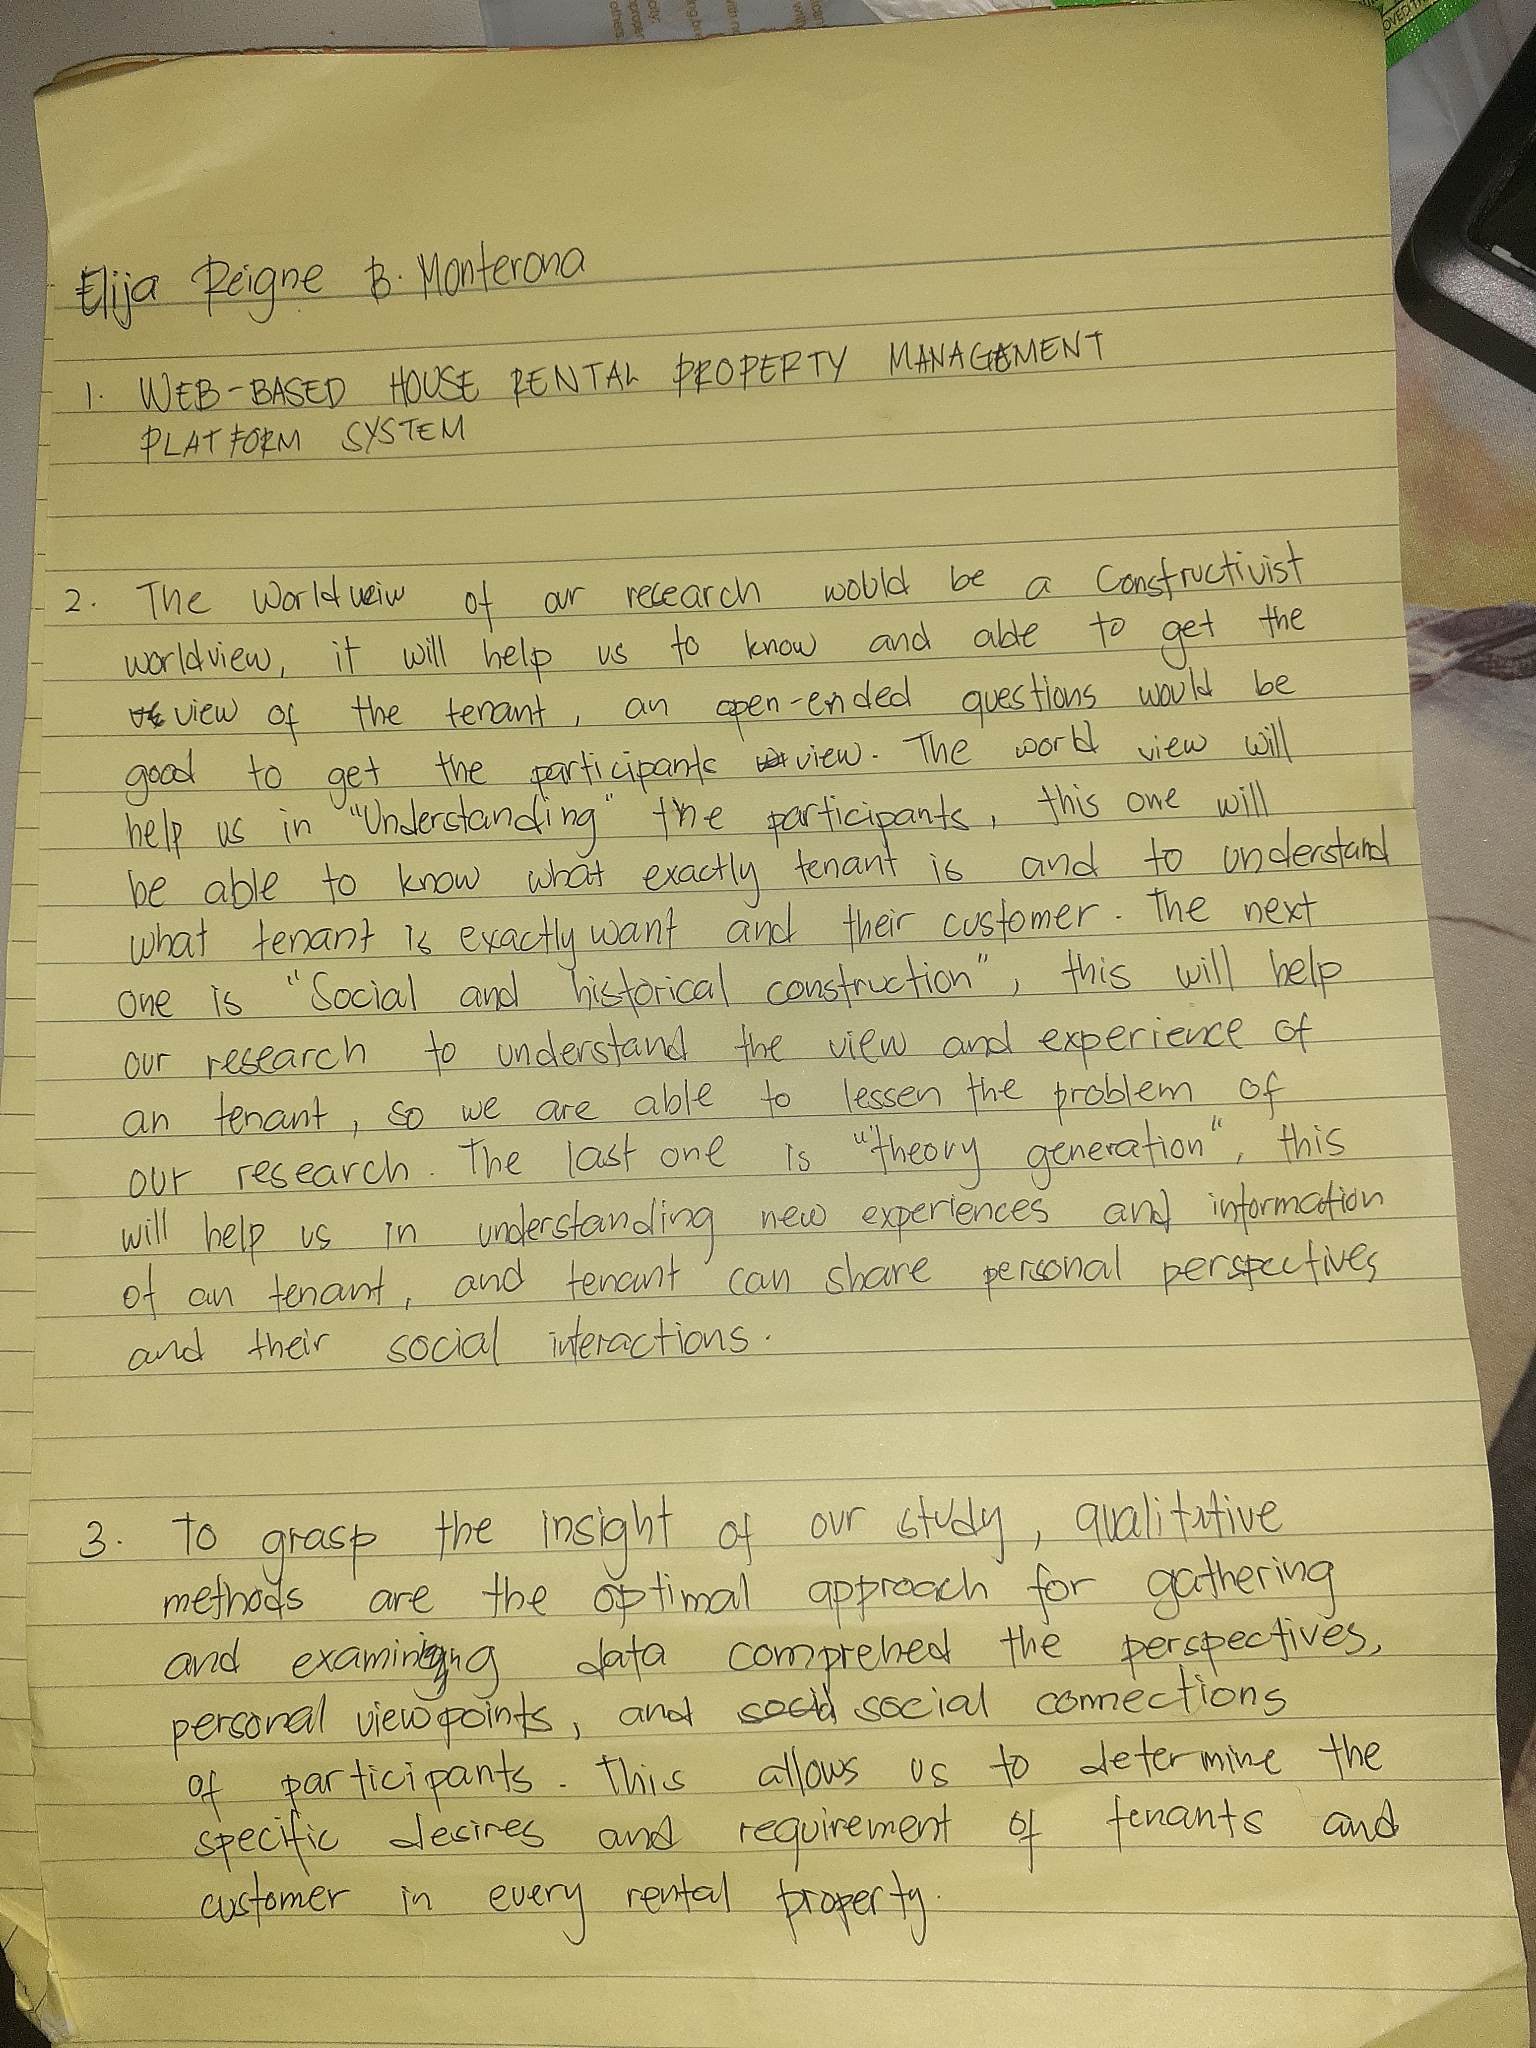 Elija Reigne B. Monterona
1. WEB-BASED HOUSE RENTAL PROPERTY MANAGEMENT
PLATFORM SYSTEM
2. The Worldveiw of our research would be a Constructivist
worldview, it will help us to know and able to get the
view of the tenant, an open-ended questions would be
good to get the participants view. The world view will
help us in "Understanding" the participants, this one will
be able to know what exactly tenant is and to understand
what tenant is exactly want and their customer. The next
one is "Social and historical construction", this will help
our research to understand the view and experience of
an tenant, so we are able to lessen the problem of
our research. The last one is "theory generation", this
will help us in understanding new experiences and information
of an tenant, and tenant can share personal perspectives
and their social interactions.
3. To grasp the insight of our study, qualitative
methods are the optimal approach for gathering
and examining data comprehed the perspectives,
personal viewpoints, and social connections
of participants. This allows us to determine the
specific desires and requirement of tenants and
customer in every rental property.